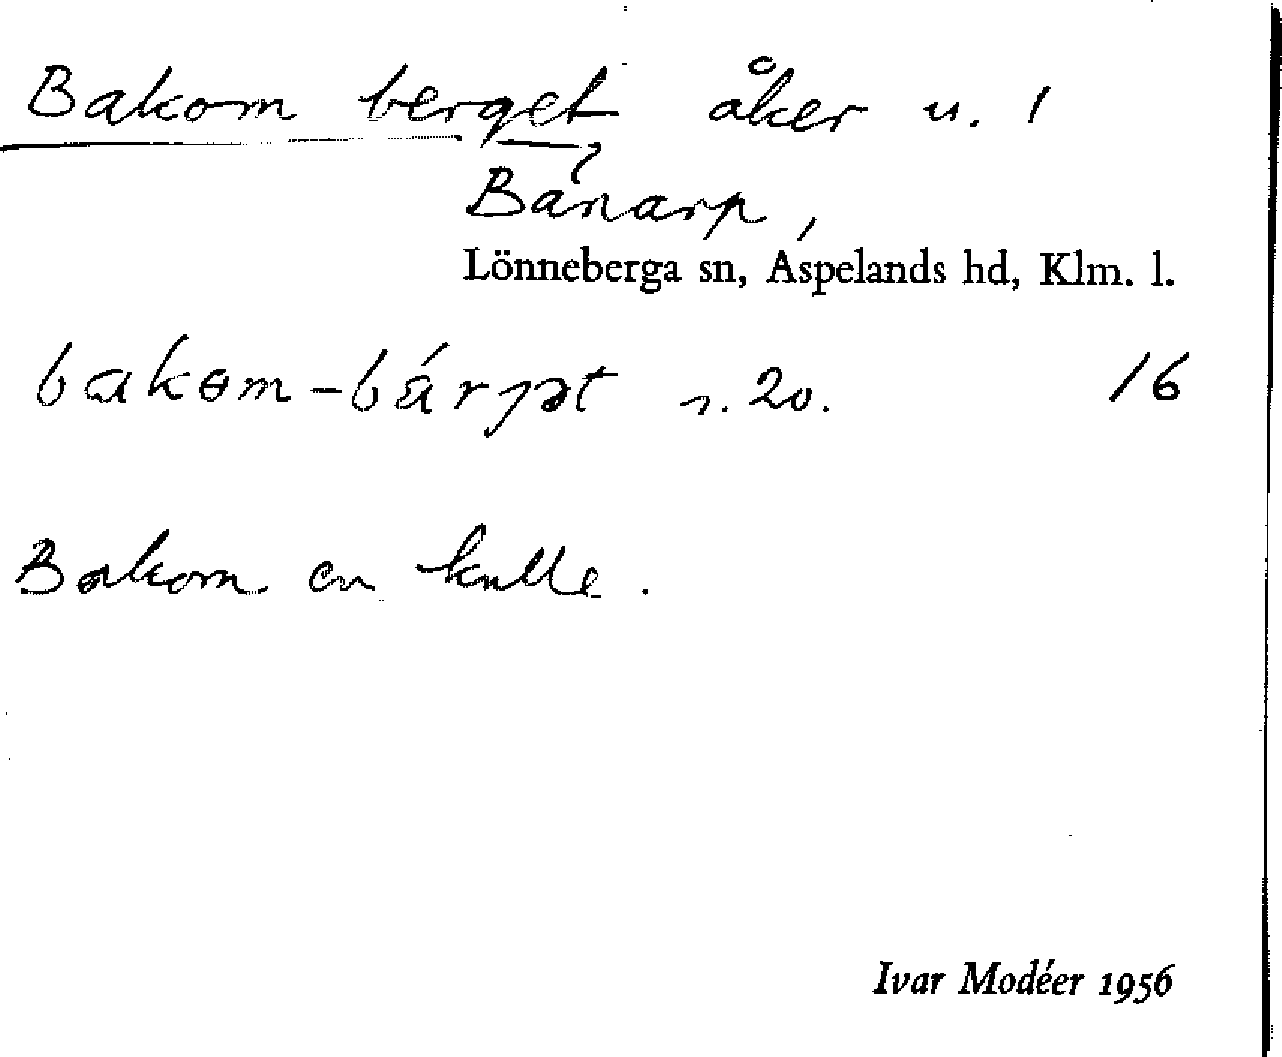 Bakom berget åker u. 1
Bånarp,
Lönneberga sn, Aspelands hd, Klm. l.
bakɵm-bárjət s. 20. 16
Bakom en kulle.
Ivar Modéer 1956